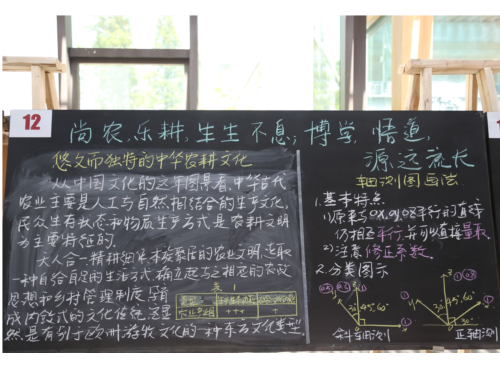 12
尚农,乐耕,生生不息;博学,悟道,
源远流长
悠久而独特的中华农耕文化
从中国文化的这年图景看,中华古代
农业主要是人工与自然相结合的生产文化,
民众生存状态和物质生产方式是农耕文明
为主要特征的。
天人合一精耕细
的农业文明,选取
一种自给自足的生活方式,确立起与之相应的农政
思想和乡村管理制度,孕育
成内敛式的文化传统,这显
然是有别于欧洲游牧文化的一种东方文化类型
表 1
+++
+
轴测图画法
1.基本特点
1)原来与OX,OY,OZ平行的直接
仍相互平行,并可以直接量取
2)注意修正系数。
2.分类图示
45° 60°
斜轴测
30°
正轴测